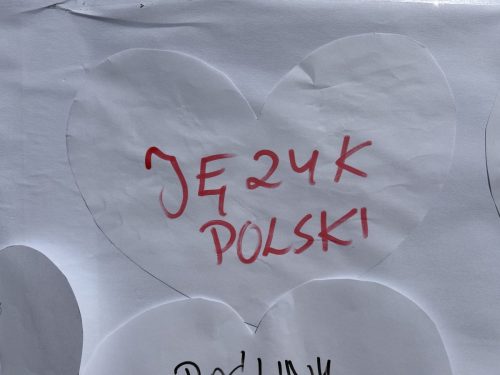 JĘZYK
POLSKI